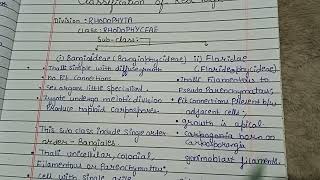 Classification of Red Algae
Division: RHODOPHYTA
Class: RHODOPHYCEAE
Sub-class:
(i) Bangioideae (Bangiophycideae) ii) Floridae
(Florideophycideae)
• Thalli simple with diffuse growth • Thalli filamentous to
• No Pit Connections Pseudo Parenchymatous
• Sex organs little specialized • Pit connections Present b/w
• Zygote undergo meiotic division adjacent cells
Produce haploid carpospores • growth is apical
• This sub class include single order • carpogonia borne on
order - Bangiales Carposporangia
• Thalli unicellular, colonial, gonimoblast filaments
Filamentous or Parenchymatous
cell with single